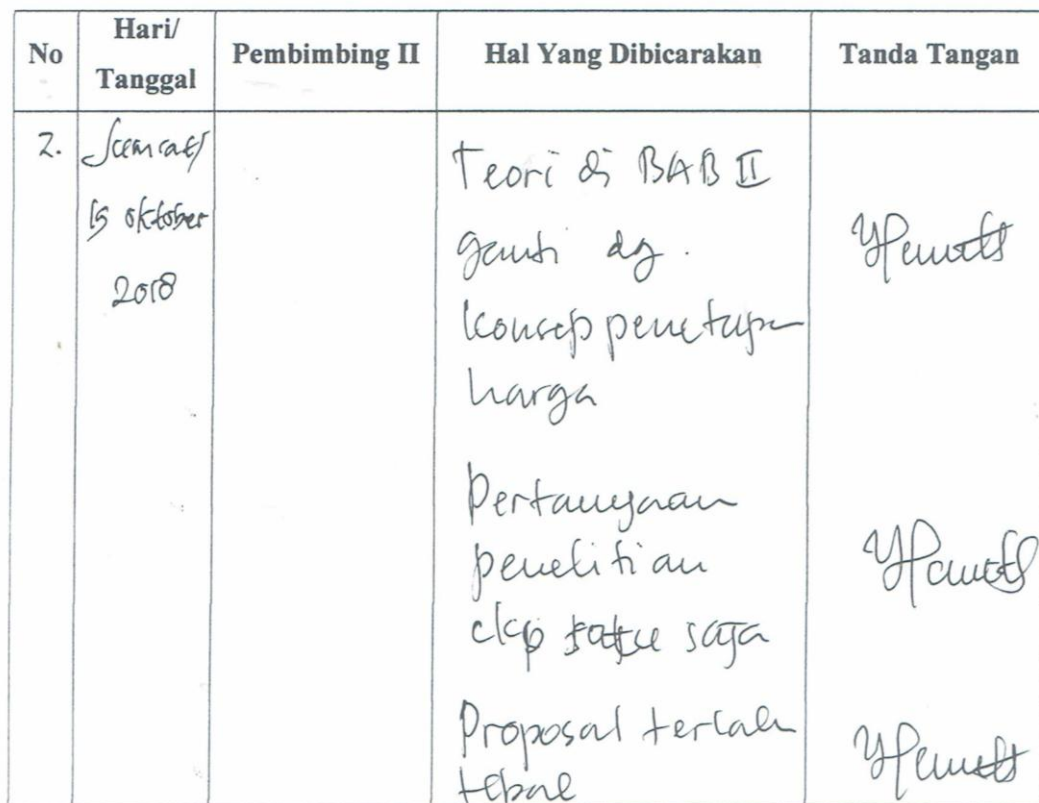 No
Hari/
Tanggal
Pembimbing II
Hal Yang Dibicarakan
Tanda Tangan
2.
oktober
2018
Teori di BAB II
ganti dg.
konsep penetapan
harga
Pertanyaan
penelitian
ckp satu saja
Proposal terlalu
tebal